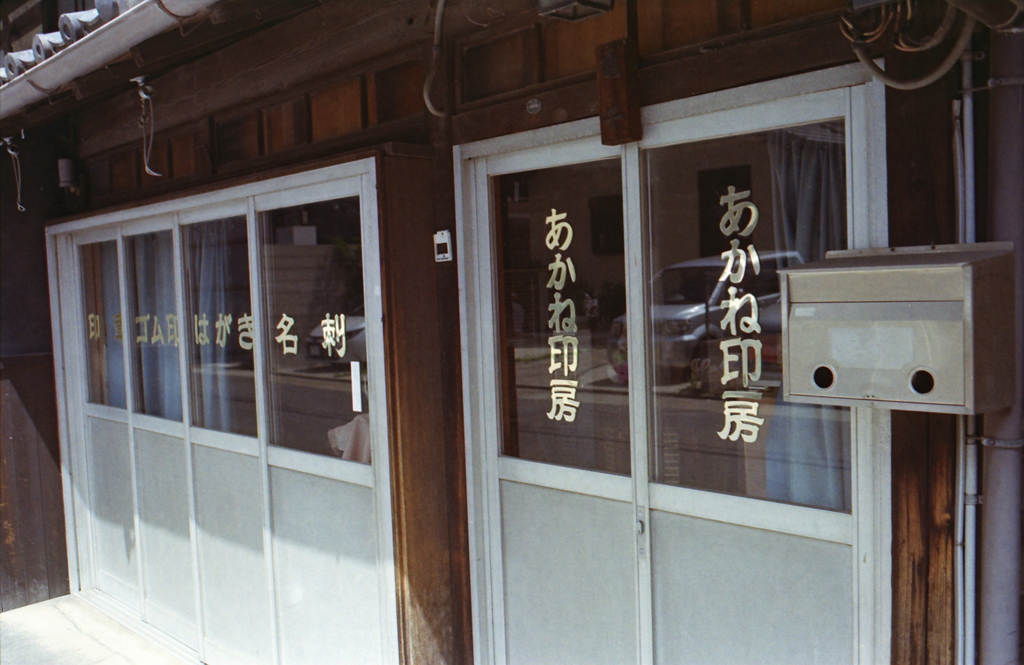 印章
ゴム印
はがき
名刺
あかね印房
あかね印房